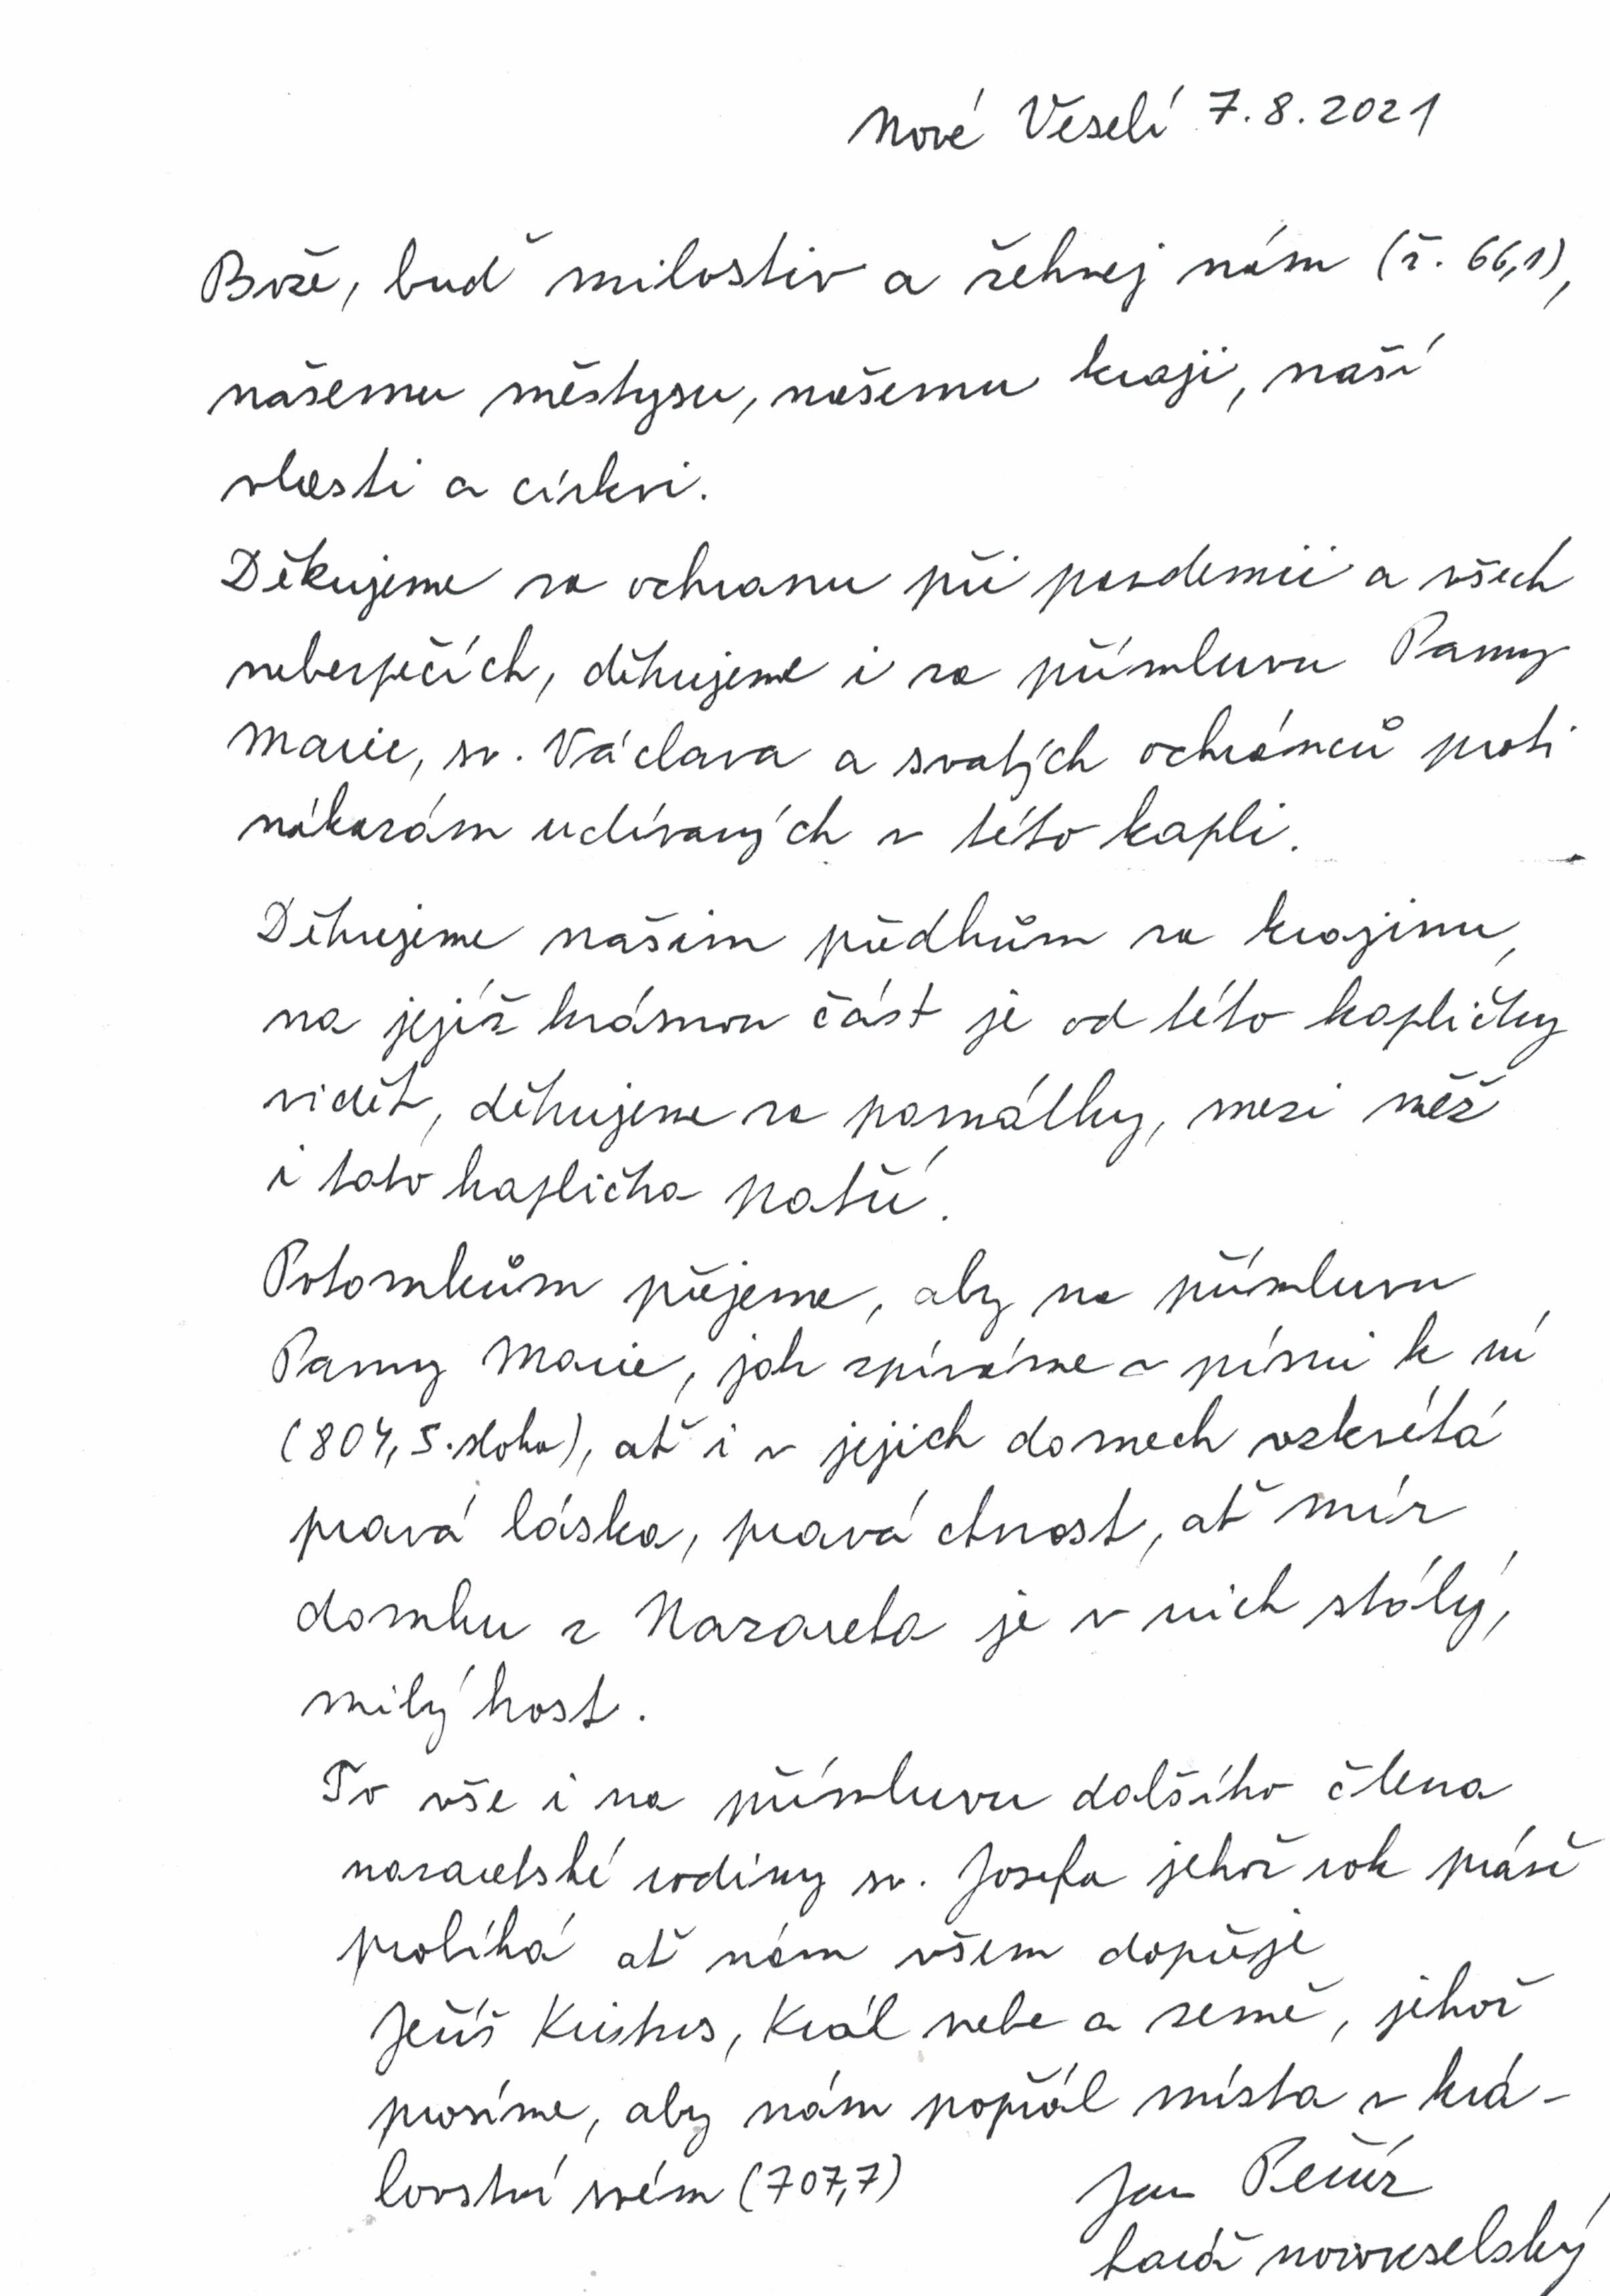 Nové Veselí 7.8.2021
Bože, buď milostiv a žehnej nám (ž. 66,1),
našemu městysu, našemu kraji, naší
vlasti a církvi.
Děkujeme za ochranu při pandemii a všech
nebezpečích, děkujeme i za přímluvu Panny
Marie, sv. Václava a svatých ochránců proti
nákazám uctívaných v této kapli.
Děkujeme našim předkům za krajinu,
na jejíž krásnou část je od této kapličky
vidět, děkujeme za památky, mezi něž
i tato kaplička patří.
Potomkům přejeme, aby na přímluvu
Panny Marie, jak zpíváme v písni k ní
(804, 5. sloha), ať i v jejich domech vzkvétá
pravá láska, pravá ctnost, ať mír
domku z Nazareta je v nich stálý,
milý host.
To vše i na přímluvu dalšího člena
nazaretské rodiny sv. Josefa jehož rok právě
probíhá ať nám všem dopřeje
Ježíš Kristus, Král nebe a země, jehož
prosíme, aby nám popřál místa v krá-
lovství svém (707,7)
Jan
farář novoveselský